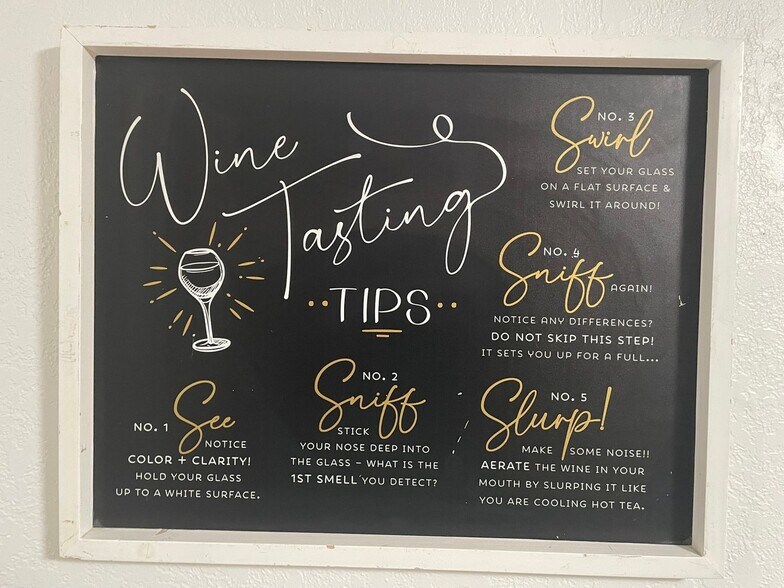 Wine
Tasting
TIPS
NO. 1 See
NOTICE
COLOR + CLARITY!
HOLD YOUR GLASS
UP TO A WHITE SURFACE.
NO. 2
Sniff
STICK
YOUR NOSE DEEP INTO
THE GLASS – WHAT IS THE
1ST SMELL YOU DETECT?
NO. 3
Swirl
SET YOUR GLASS
ON A FLAT SURFACE &
SWIRL IT AROUND!
NO. 4
Sniff AGAIN!
NOTICE ANY DIFFERENCES?
DO NOT SKIP THIS STEP!
IT SETS YOU UP FOR A FULL...
NO. 5
Slurp!
MAKE SOME NOISE!!
AERATE THE WINE IN YOUR
MOUTH BY SLURPING IT LIKE
YOU ARE COOLING HOT TEA.